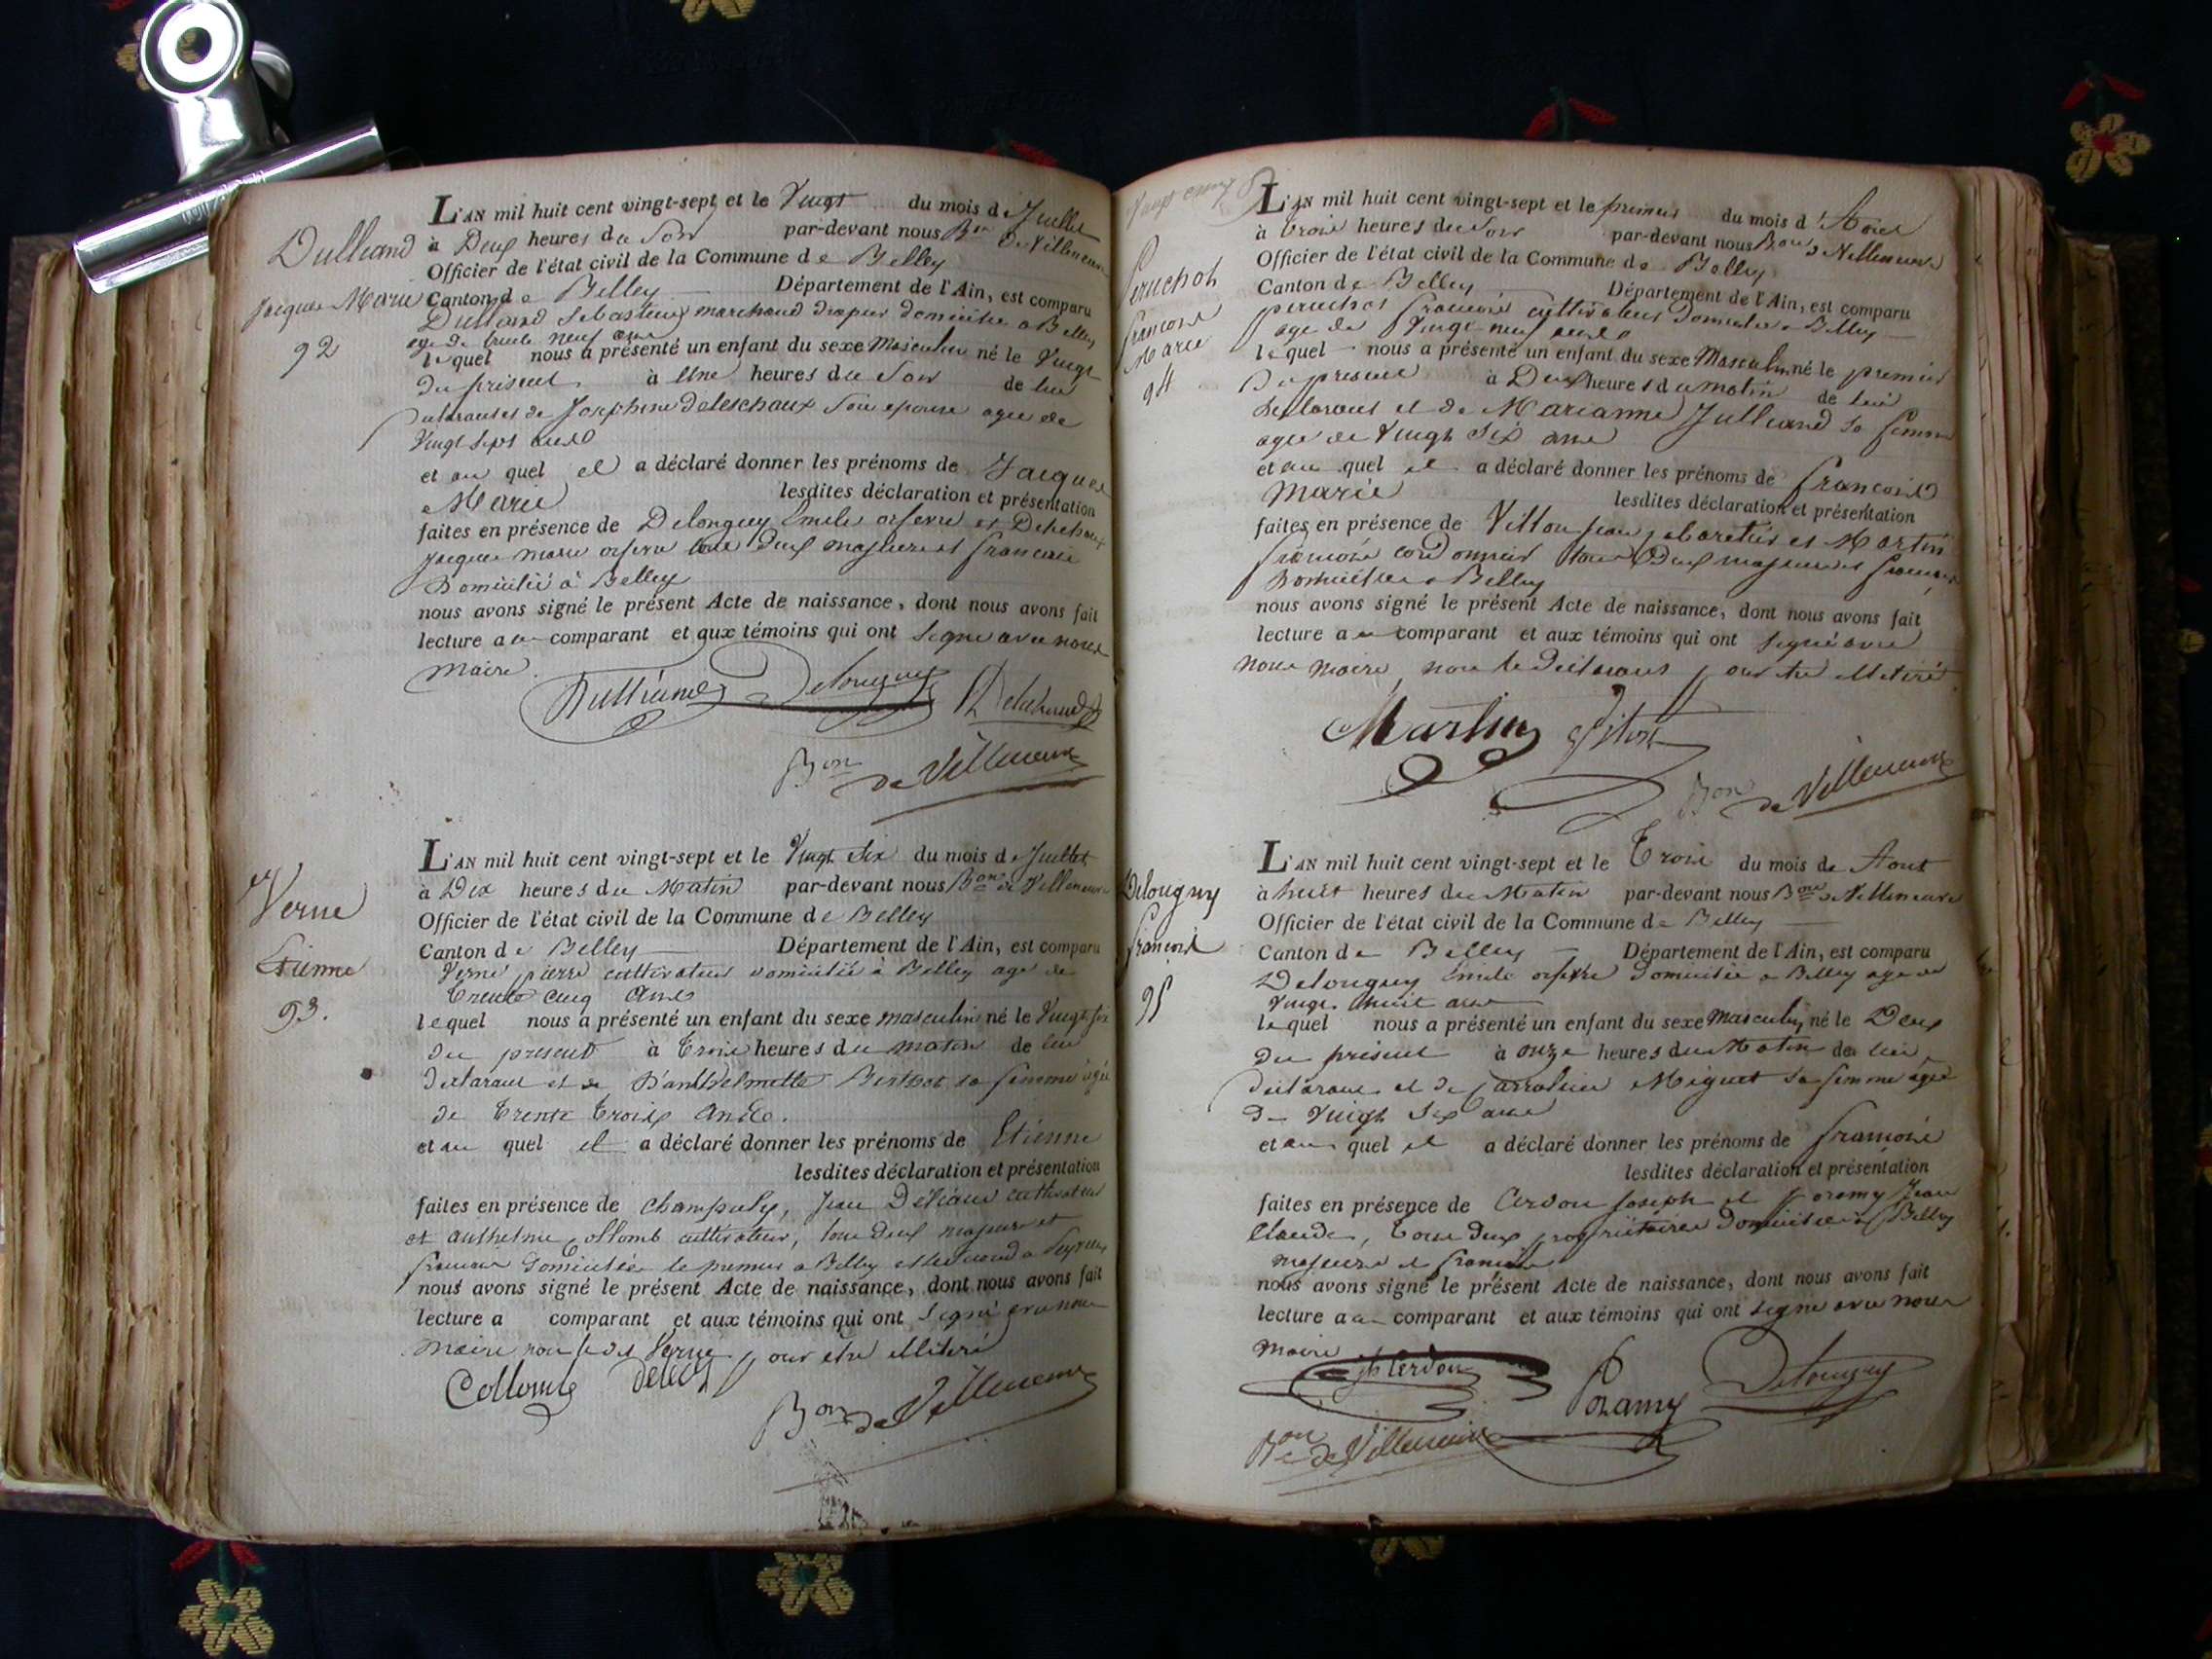 Dulliand
Jacques Marie
92
L'AN mil huit cent vingt-sept et le Vingt du mois de Juillet
à Deux heures du Soir par-devant nous Bon de Villeneuve
Officier de l'état civil de la Commune de Belley
Canton de Belley Département de l'Ain, est comparu
Dulliand Sebastien marchand drapier domicilié a Belley
age de trente neuf ans
lequel nous a présenté un enfant du sexe Masculin né le Vingt
du present à Une heures du Soir de lui
declarant et de Josephine Deleschaux Son epouse agee de
Vingt Sept ans
et au quel il a déclaré donner les prénoms de Jacques
Marie lesdites déclaration et présentation
faites en présence de Delonguy Emile orfevre et
Jacques marie orfevre tous deux majeurs et francais
Domicilié à Belley
nous avons signé le présent Acte de naissance, dont nous avons fait
lecture au comparant et aux témoins qui ont Signé avec nous
maire.
Bon de Villeneuve
Verne
Etienne
93.
L'AN mil huit cent vingt-sept et le Vingt Six du mois de Juillet
à Dix heures du Matin par-devant nous Bon de Villeneuve
Officier de l'état civil de la Commune de Belley
Canton de Belley Département de l'Ain, est comparu
Verne pierre cultivateur domicilié à Belley age de
trente cinq ans
lequel nous a présenté un enfant du sexe masculin né le Vingt six
du present à trois heures du matin de lui
declarant et de Berthet sa femme agée
de trente trois ans.
et au quel il a déclaré donner les prénoms de Etienne
lesdites déclaration et présentation
faites en présence de Jean cultivateur
et anthelme Collomb cultivateur, tous deux majeurs et
francais domiciliés le premier a Belley et le second a
nous avons signé le présent Acte de naissance, dont nous avons fait
lecture a comparant et aux témoins qui ont signé avec nous
maire non le dit Verne pour etre illitéré
Collomb
Bon de Villeneuve
Peruchot
francois
Marie
94
L'AN mil huit cent vingt-sept et le premier du mois d'Aout
à trois heures du Soir par-devant nous Bon de Villeneuve
Officier de l'état civil de la Commune de Belley
Canton de Belley Département de l'Ain, est comparu
peruchot francois cultivateur domicilié a Belley
age de Vingt neuf ans
lequel nous a présenté un enfant du sexe Masculin né le premier
Du present à Deux heures du matin de lui
declarant et de Marianne Julliand sa femme
agee de Vingt Six ans
et au quel il a déclaré donner les prénoms de francois
Marie lesdites déclaration et présentation
faites en présence de Jean cabaretier et Martin
francois cordonnier tous Deux majeurs et francais
domiciliés a Belley
nous avons signé le présent Acte de naissance, dont nous avons fait
lecture au comparant et aux témoins qui ont signé avec
nous maire, non le declarant pour etre illitéré
Martin
Bon de Villeneuve
Delonguy
francois
95
L'AN mil huit cent vingt-sept et le Trois du mois de Aout
à huit heures du Matin par-devant nous Bon de Villeneuve
Officier de l'état civil de la Commune de Belley
Canton de Belley Département de l'Ain, est comparu
Delonguy Emile orfevre domicilié a Belley age de
Vingt huit ans
lequel nous a présenté un enfant du sexe Masculin né le Deux
du present à onze heures du Matin de lui
declarant et de Carroline Miguet sa femme agée
de Vingt Six ans
et au quel il a déclaré donner les prénoms de francois
lesdites déclaration et présentation
faites en présence de Cerdon Joseph et Poramy Jean
Claude, tous deux proprietaires domiciliés a Belley
majeurs et francais
nous avons signé le présent Acte de naissance, dont nous avons fait
lecture au comparant et aux témoins qui ont signé avec nous
maire
Jh Cerdon
Poramy
Delonguy
Bon de Villeneuve